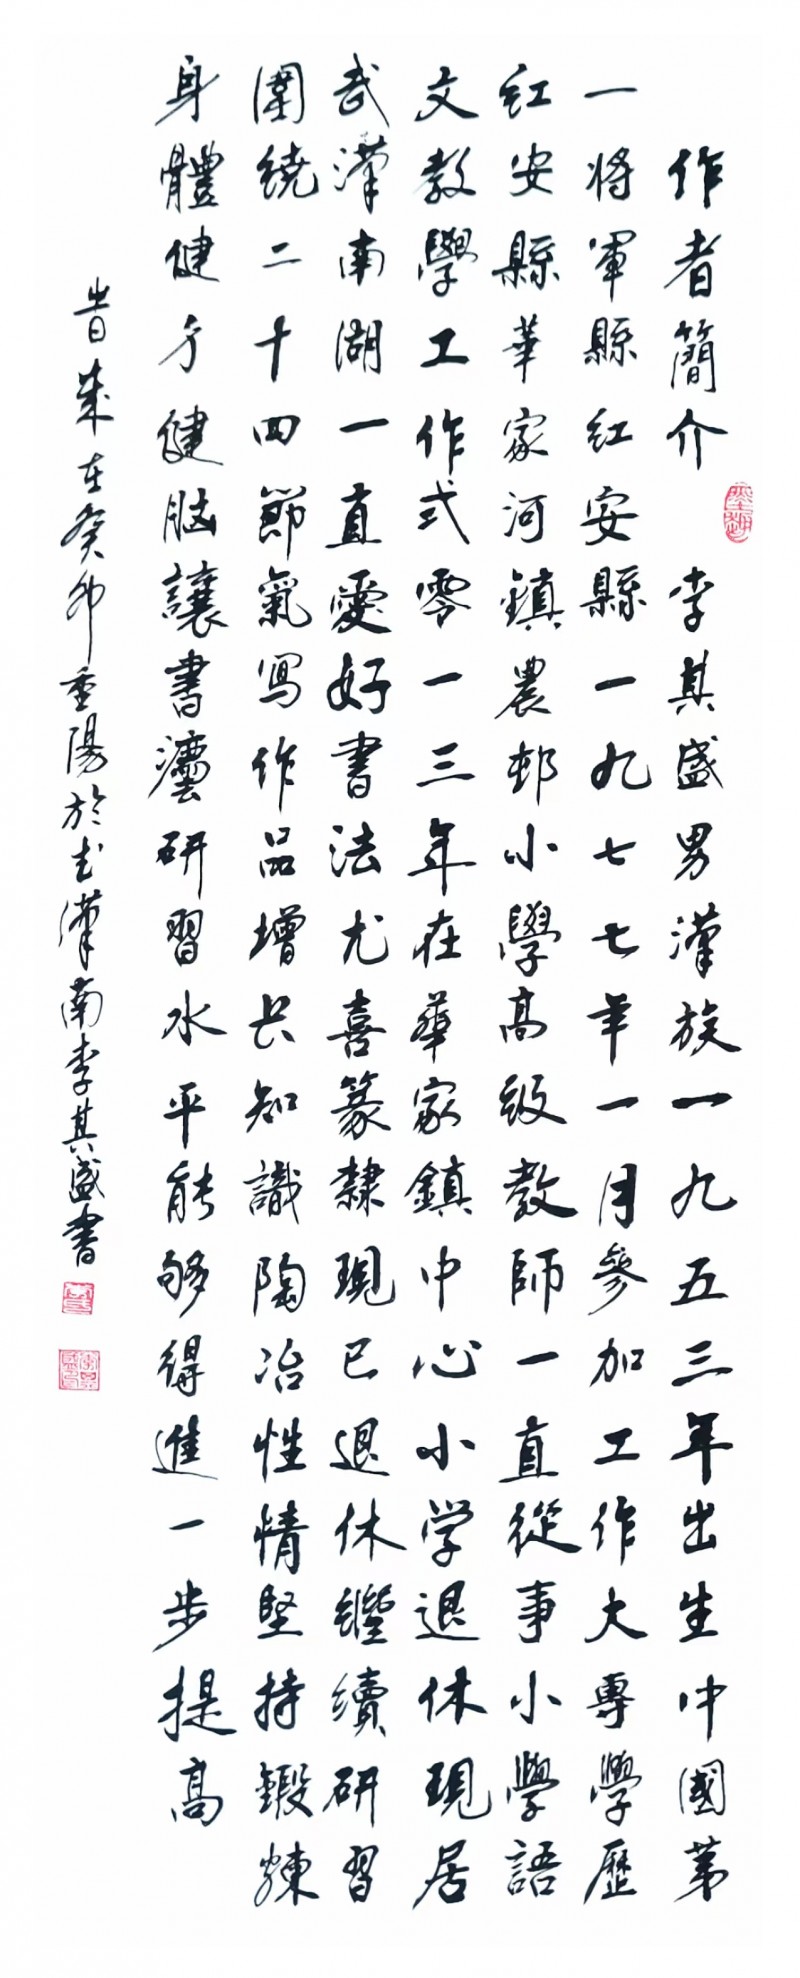 作者簡介 李其盛男漢族一九五三年出生中國第
一將軍縣紅安縣一九七七年一月參加工作大專學歷
紅安縣華家河鎮農邨小學高級教師一直從事小學語
文教學工作弍零一三年在華家鎮中心小学退休現居
武漢南湖一直愛好書法尤喜篆隸現已退休繼續研習
圍繞二十四節氣寫作品增长知識陶冶性情堅持鍛煉
身體健身健脑讓書灋研習水平能够得進一步提高
歲在癸卯重陽於武漢南李其盛書